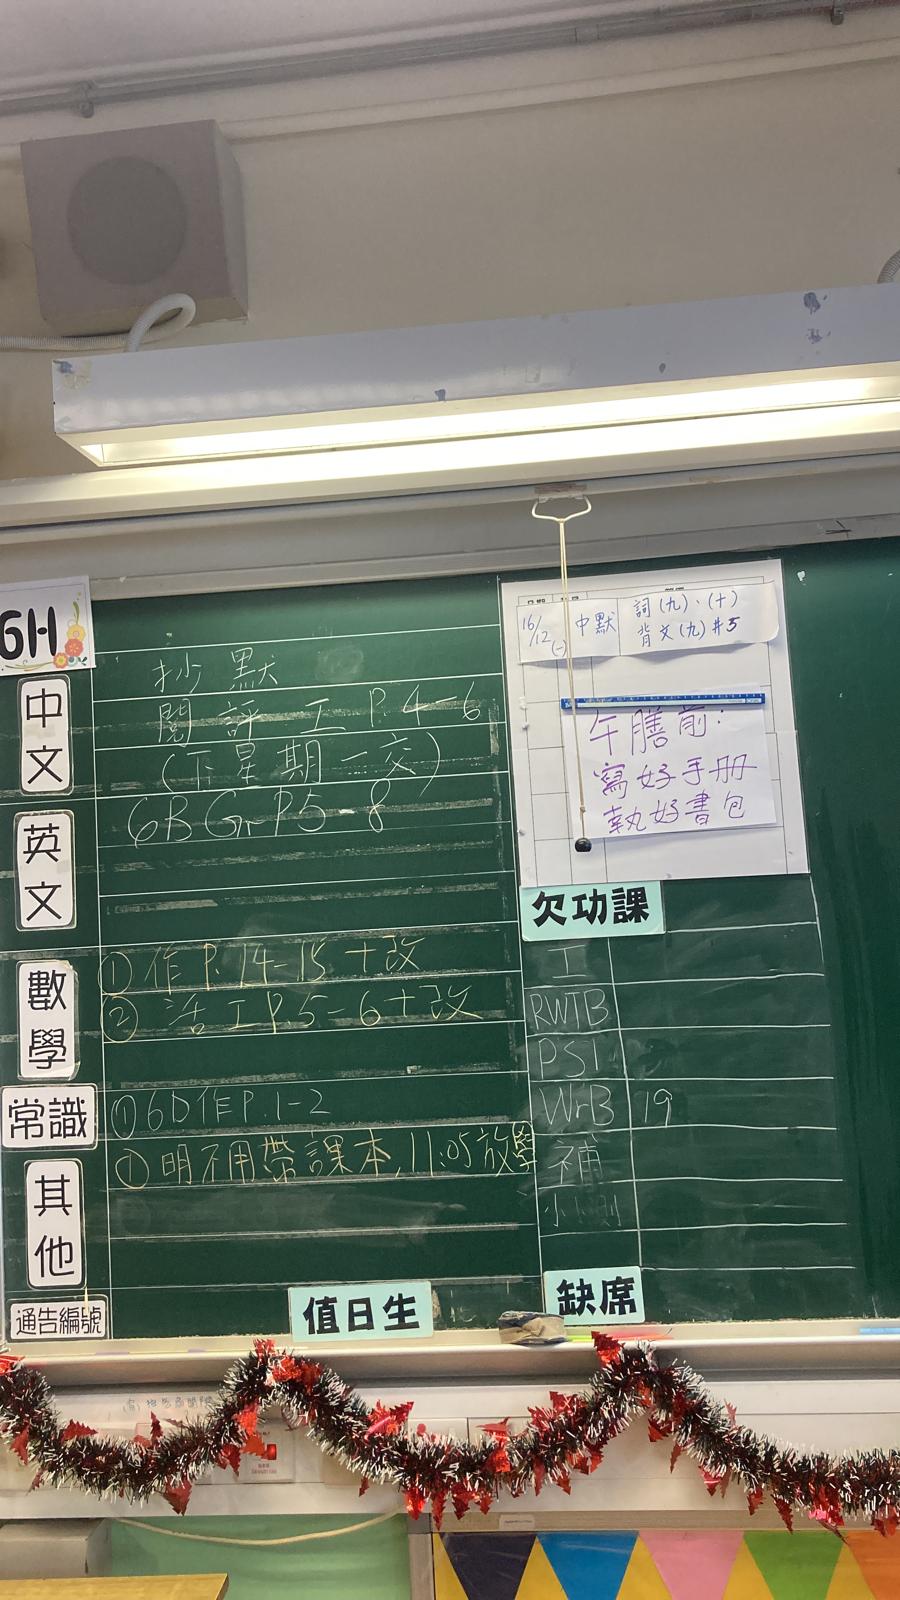 6H
中文
抄默
閱評工 P.4-6
(下星期一交)
英文
6B Gr P5-8
數學
① 作 P.14-15+改
② 活工 P.5-6+改
常識
① 6D作 P.1-2
其他
① 明不用帶課本, 11:05放學
通告編號
值日生
16/12 (一) 中默 詞(九)、(十)
背文(九)#5
午膳前:
寫好手冊
執好書包
欠功課
工
RWTB
PS1
WrB 19
補
缺席